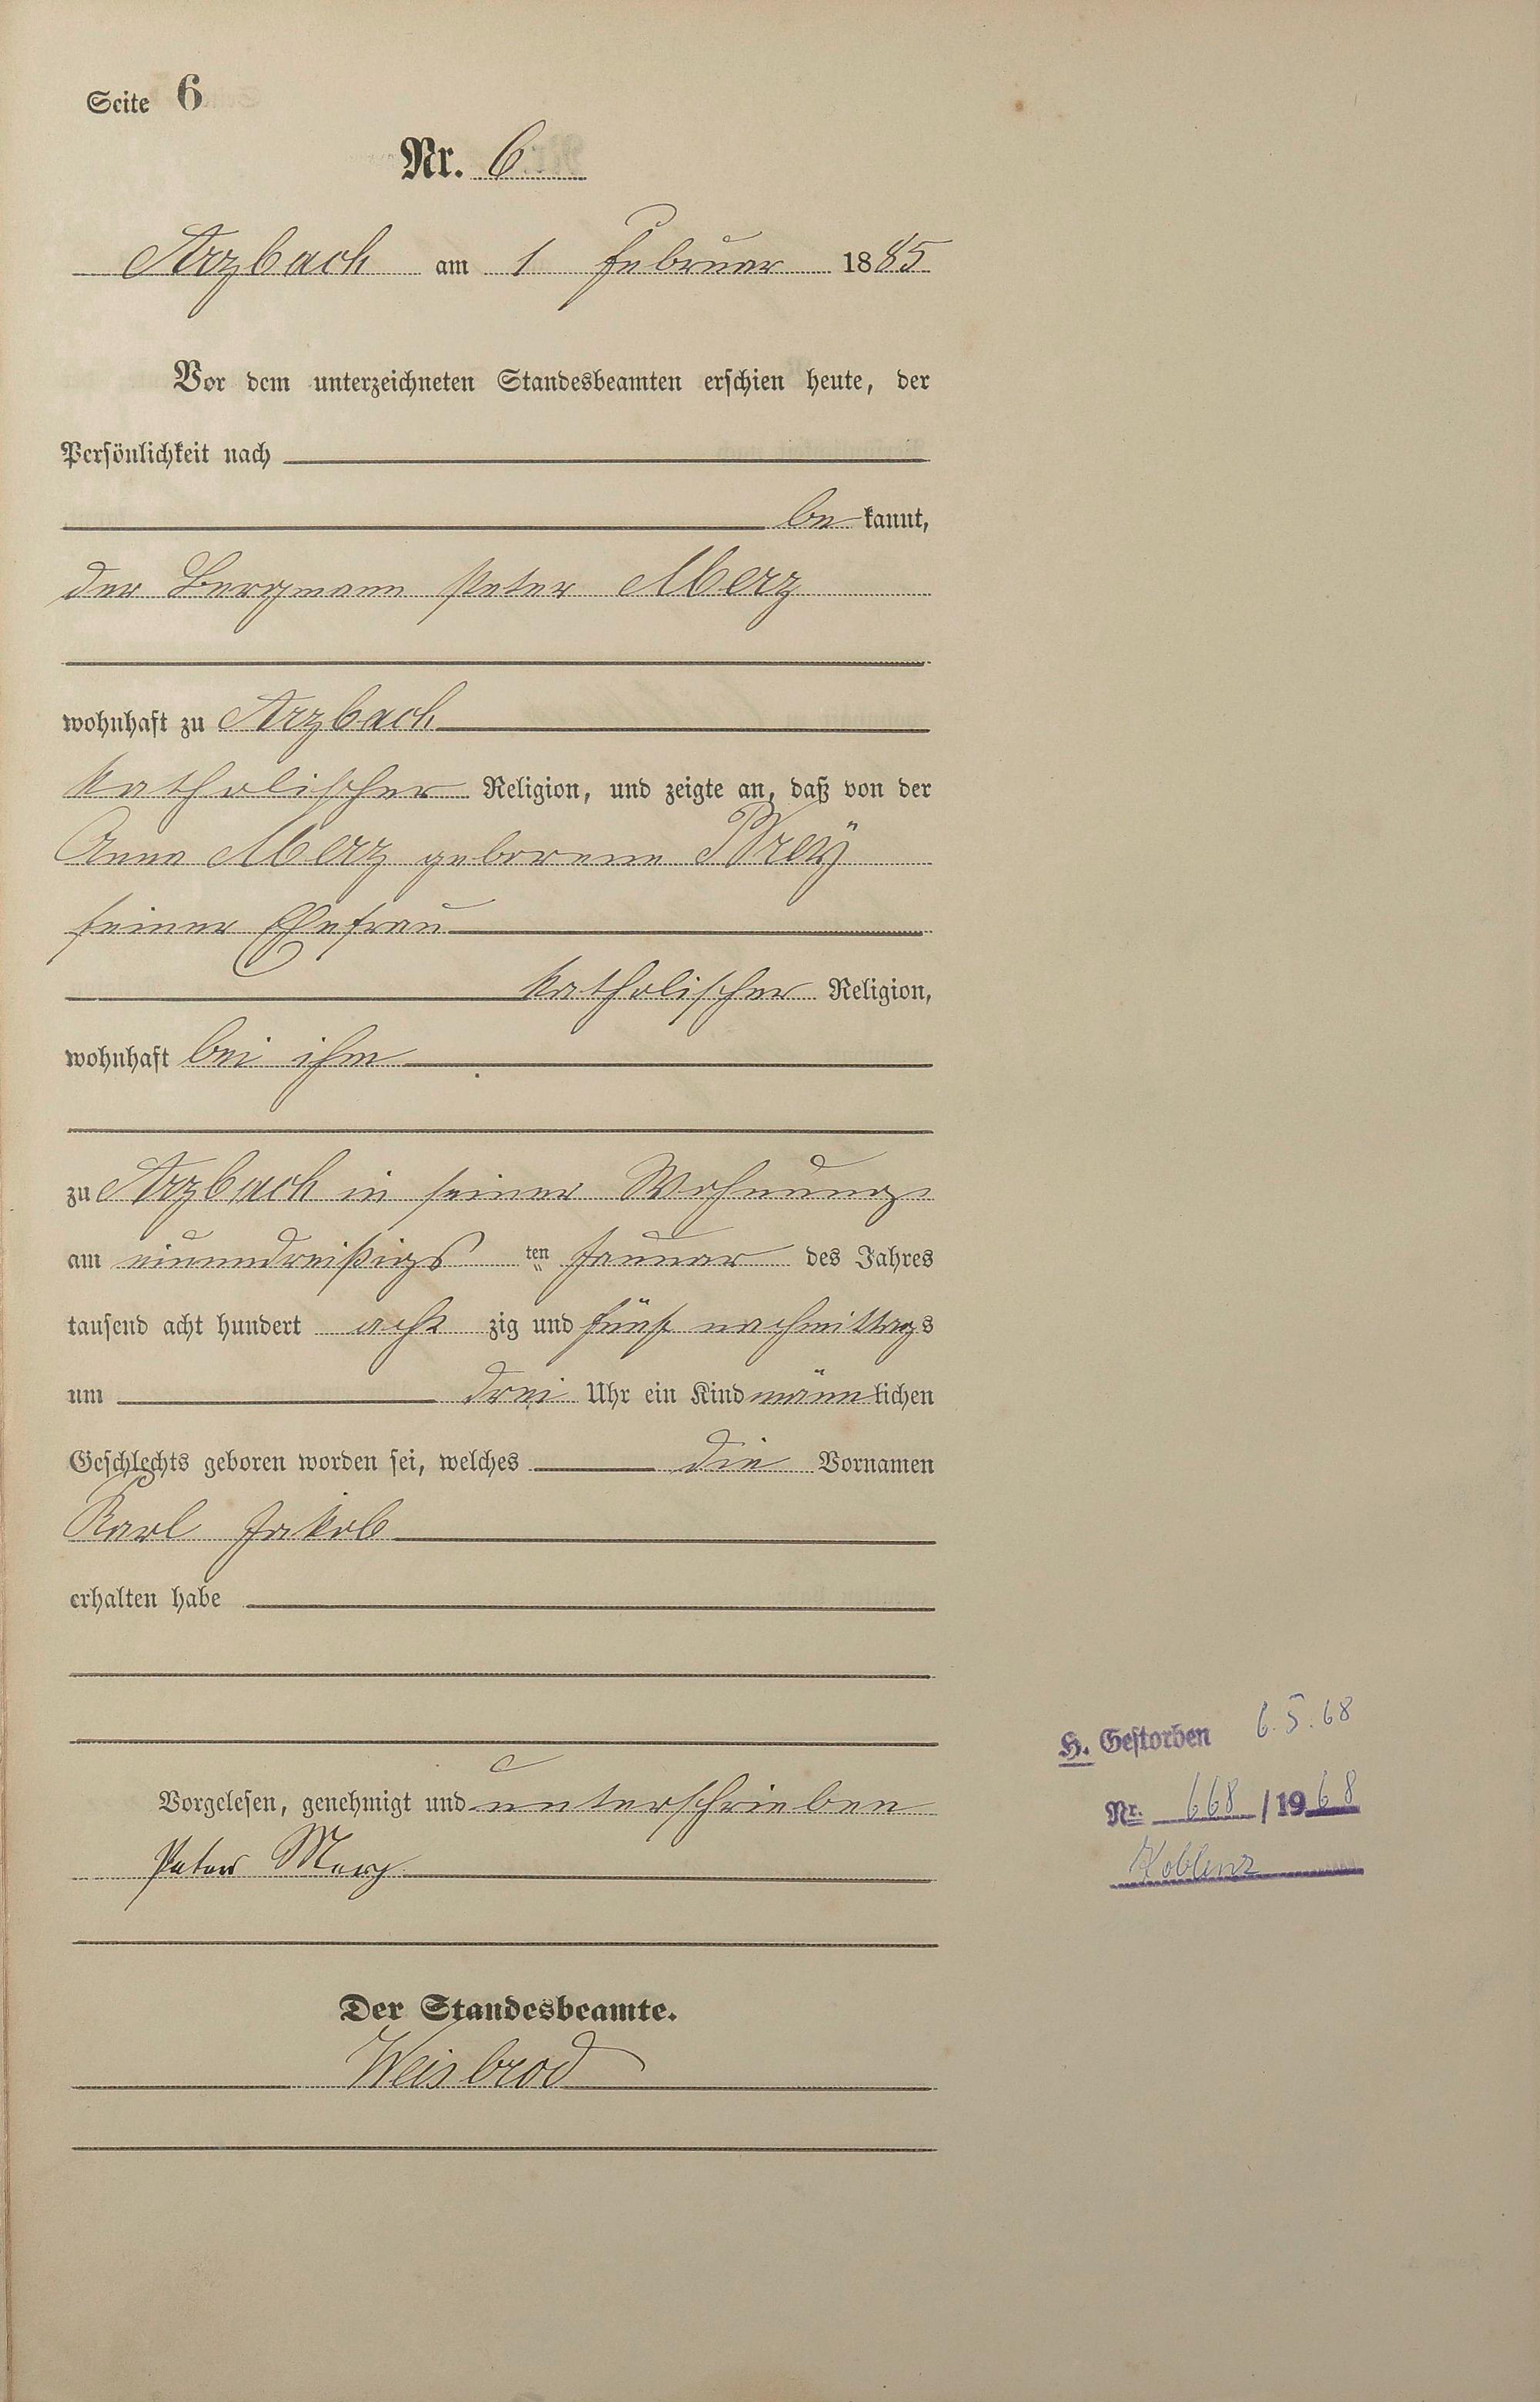 Seite 6
Nr. 6
Arzbach am 1 Februar 1885
Vor dem unterzeichneten Standesbeamten erschien heute, der
Persönlichkeit nach
be kannt,
der Bergmann Peter Merz
wohnhaft zu Arzbach
katholischer Religion, und zeigte an, daß von der
Anna Merz geborene
seiner Ehefrau
katholischer Religion,
wohnhaft bei ihm
zu Arzbach in seiner Wohnung
am einunddreißigs ten Januar des Jahres
tausend acht hundert acht zig und fünf nachmittags
um drei Uhr ein Kind männlichen
Geschlechts geboren worden sei, welches die Vornamen
Karl Jakob
erhalten habe
Vorgelesen, genehmigt und unterschrieben
Peter Merz
Der Standesbeamte.
Weisbrod
H. Gestorben 6.5.68
Nr. 668 / 1968
Koblenz